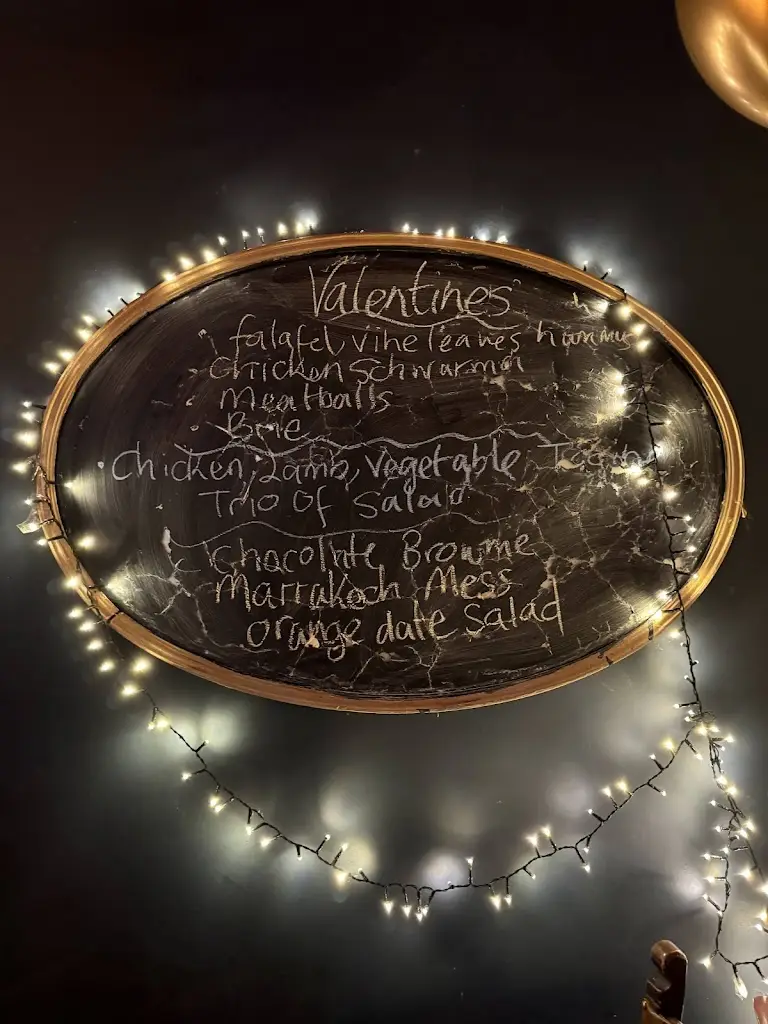 Valentines
falafel vine leaves hummu
Chicken Schwarma
Meatballs
Brie
Chicken, Lamb, Vegetable
Trio Of Salad
Chocolate Brownie
Marrakech Mess
Orange date Salad